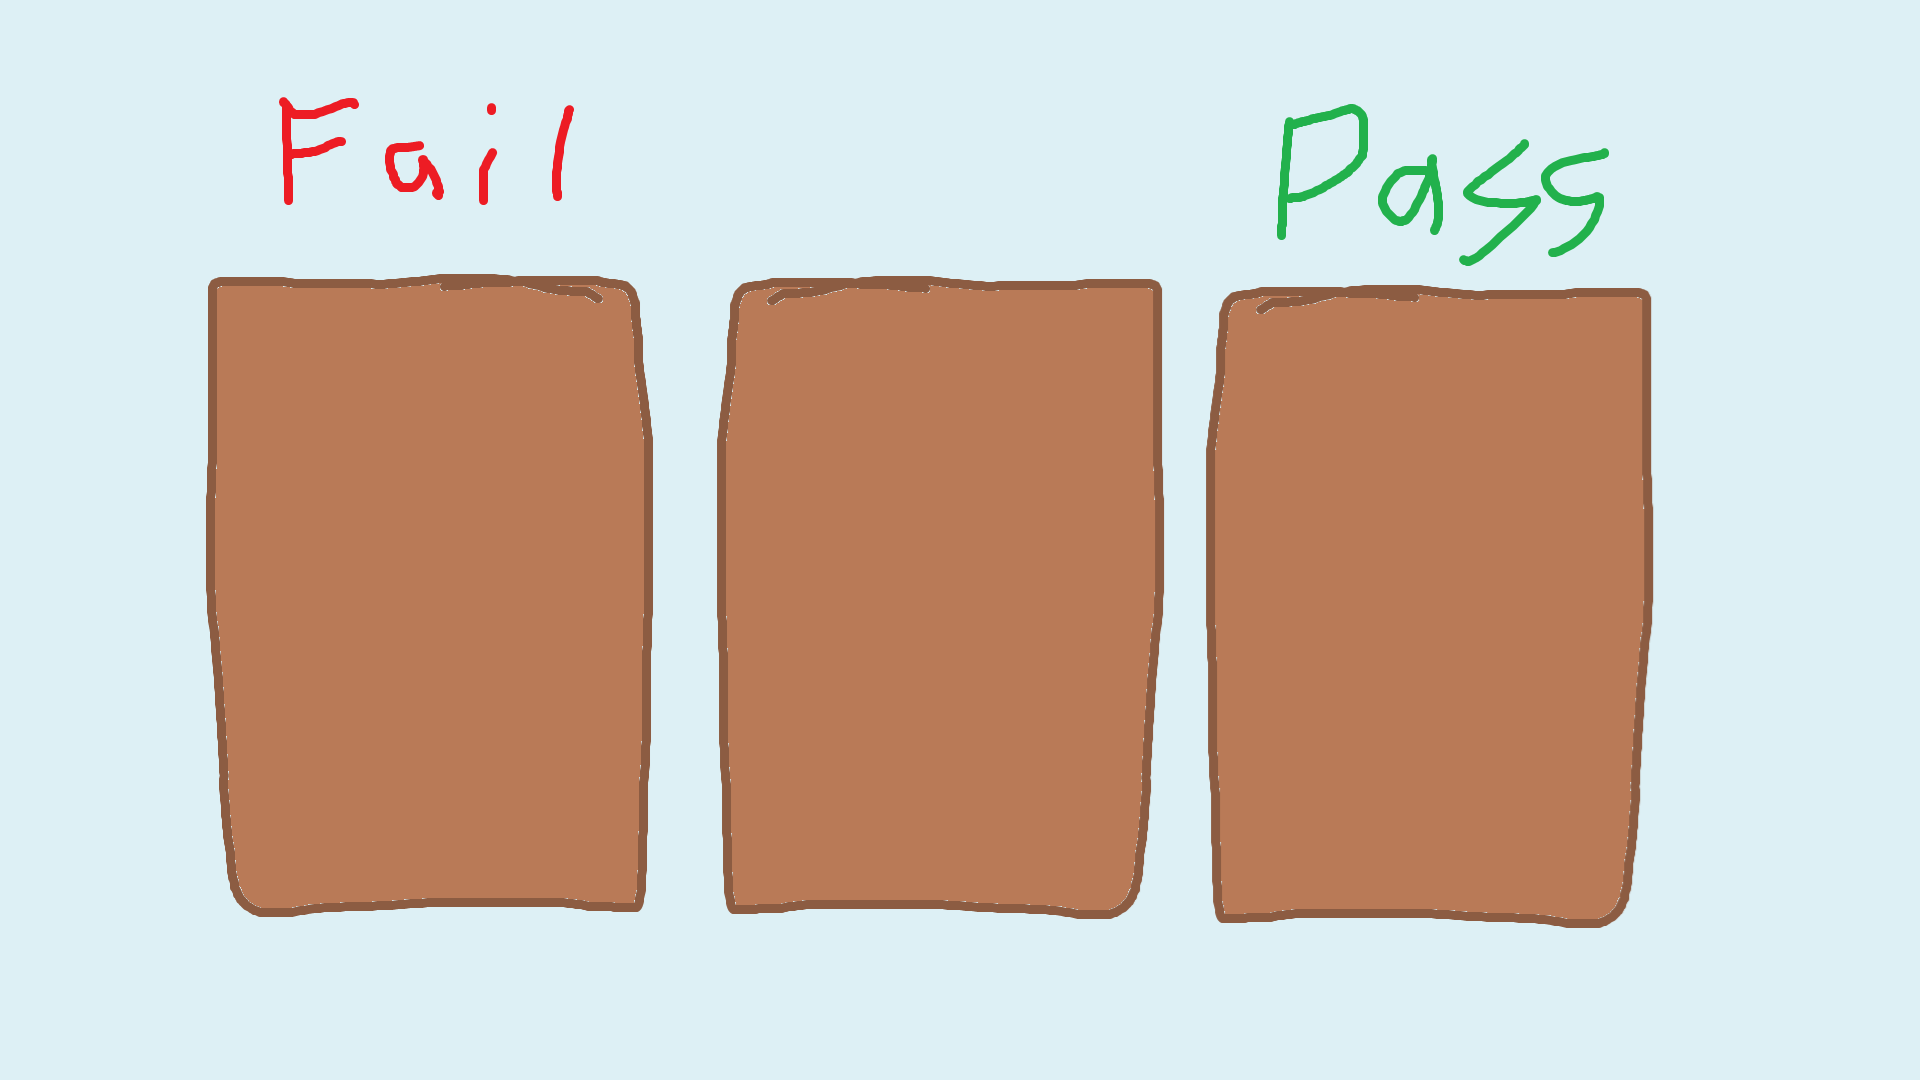 Fail
Pass